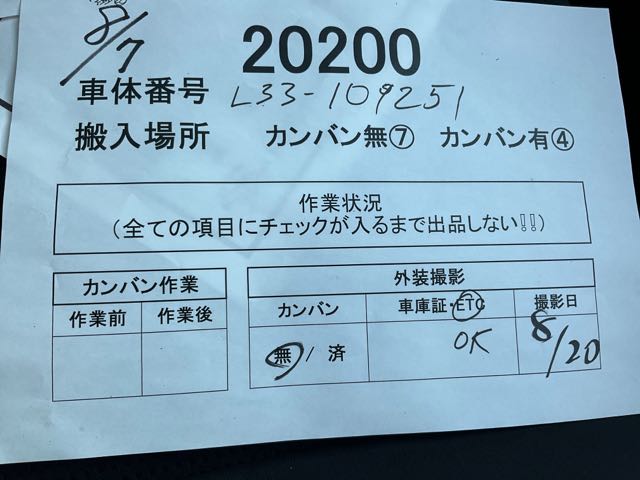 8/7
20200
車体番号 L33-109251
搬入場所 カンバン無⑦ カンバン有④
作業状況
(全ての項目にチェックが入るまで出品しない!!)
カンバン作業
作業前 作業後
外装撮影
カンバン 車庫証・ETC 撮影日
無/済 OK 8/20